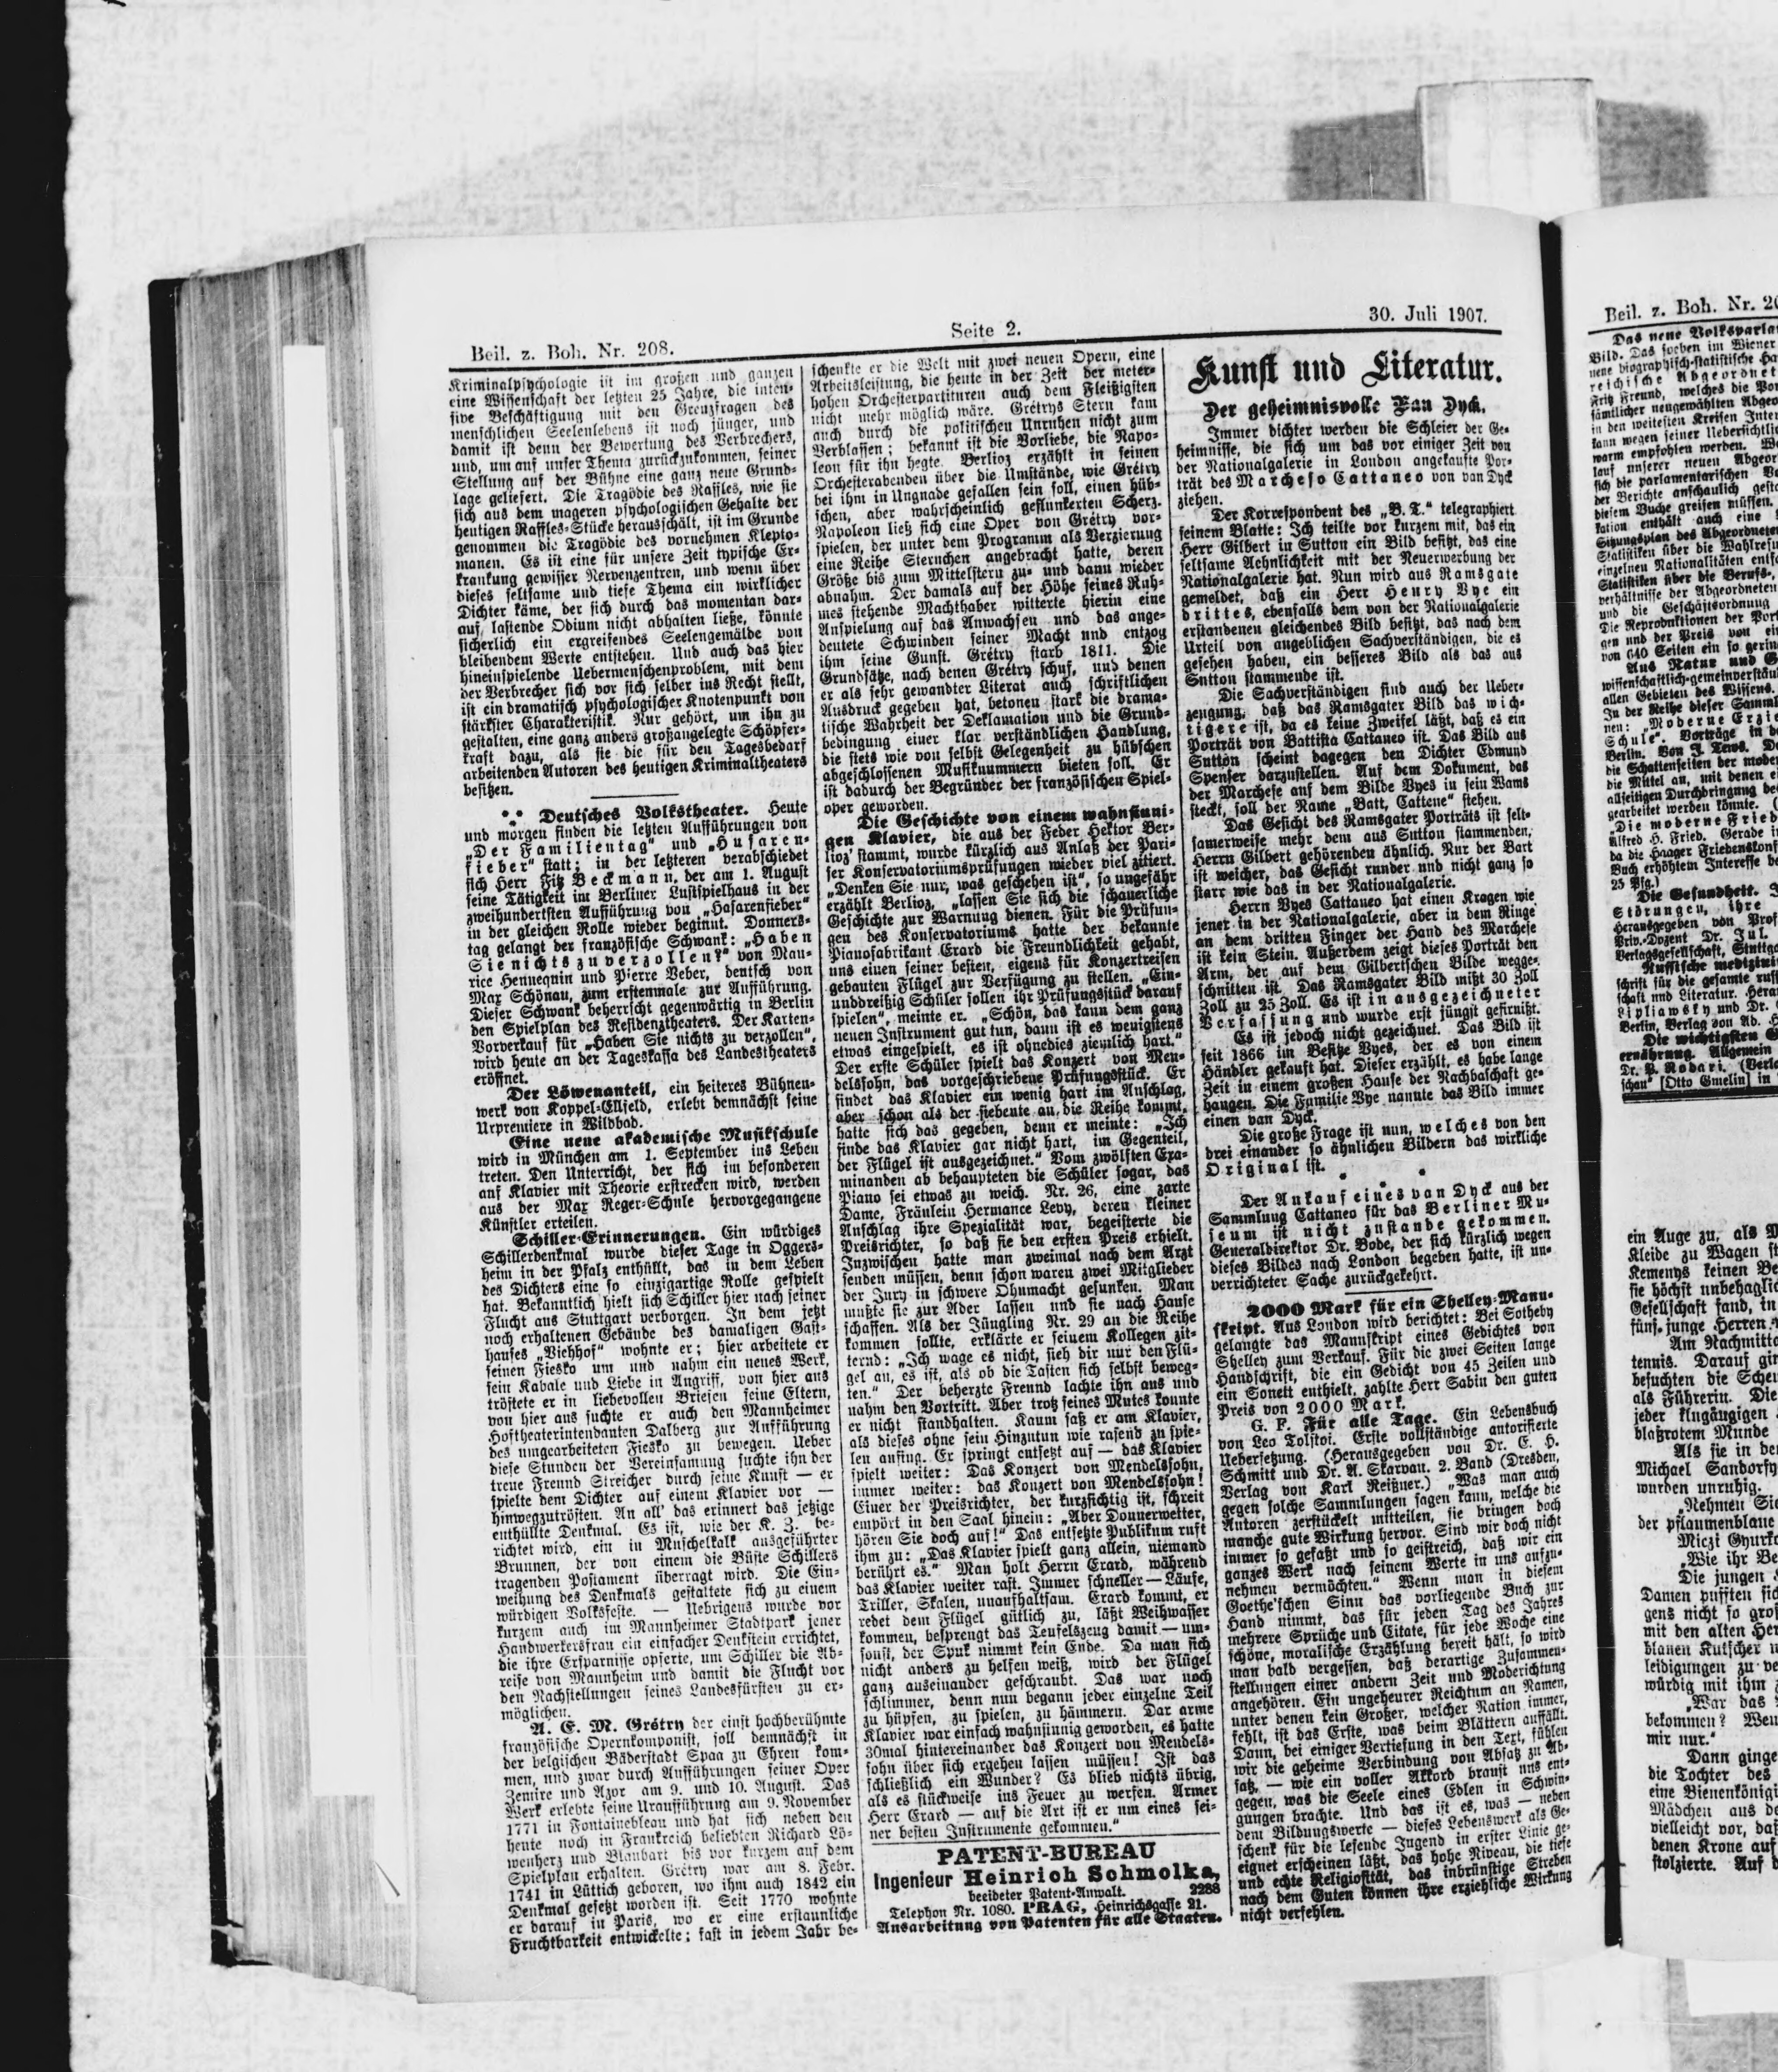 Beil. z. Boh. Nr. 208.
Seite 2.
30. Juli 1907.
Kriminalpsychologie ist im großen und ganzen
eine Wissenschaft der letzten 25 Jahre, die inten-
sive Beschäftigung mit den Grenzfragen des
menschlichen Seelenlebens ist noch jünger, und
damit ist denn der Bewertung des Verbrechers,
und, um auf unser Thema zurückzukommen, seiner
Stellung auf der Bühne eine ganz neue Grund-
lage geliefert. Die Tragödie des Raffles, wie sie
sich aus dem mageren psychologischen Gehalte der
heutigen Raffles-Stücke herausschält, ist im Grunde
genommen die Tragödie des vornehmen Klepto-
manen. Es ist eine für unsere Zeit typische Er-
krankung gewisser Nervenzentren, und wenn über
dieses seltsame und tiefe Thema ein wirklicher
Dichter käme, der sich durch das momentan dar-
auf lastende Odium nicht abhalten ließe, könnte
sicherlich ein ergreifendes Seelengemälde von
bleibendem Werte entstehen. Und auch das hier
hineinspielende Uebermenschenproblem, mit dem
der Verbrecher sich vor sich selber ins Recht stellt,
ist ein dramatisch psychologischer Knotenpunkt von
stärkster Charakteristik. Nur gehört, um ihn zu
gestalten, eine ganz anders großangelegte Schöpfer-
kraft dazu, als sie die für den Tagesbedarf
arbeitenden Autoren des heutigen Kriminaltheaters
besitzen.
** Deutsches Volkstheater. Heute
und morgen finden die letzten Aufführungen von
„Der Familientag“ und „Husaren-
fieber“ statt; in der letzteren verabschiedet
sich Herr Fitz Beckmann, der am 1. August
seine Tätigkeit im Berliner Lustspielhaus in der
zweihundertsten Aufführung von „Husarenfieber“
in der gleichen Rolle wieder beginnt. Donners-
tag gelangt der französische Schwank: „Haben
Sie nichts zu verzollen?“ von Mau-
rice Hennequin und Pierre Veber, deutsch von
Max Schönau, zum erstenmale zur Aufführung.
Dieser Schwank beherrscht gegenwärtig in Berlin
den Spielplan des Residenztheaters. Der Karten-
Vorverkauf für „Haben Sie nichts zu verzollen“,
wird heute an der Tageskassa des Landestheaters
eröffnet.
Der Löwenanteil, ein heiteres Bühnen-
werk von Koppel-Ellfeld, erlebt demnächst seine
Urpremiere in Wildbad.
Eine neue akademische Musikschule
wird in München am 1. September ins Leben
treten. Den Unterricht, der sich im besonderen
auf Klavier mit Theorie erstrecken wird, werden
aus der Max Reger-Schule hervorgegangene
Künstler erteilen.
Schiller-Erinnerungen. Ein würdiges
Schillerdenkmal wurde dieser Tage in Oggers-
heim in der Pfalz enthüllt, das in dem Leben
des Dichters eine so einzigartige Rolle gespielt
hat. Bekanntlich hielt sich Schiller hier nach seiner
Flucht aus Stuttgart verborgen. In dem jetzt
noch erhaltenen Gebäude des damaligen Gast-
hauses „Viehhof“ wohnte er; hier arbeitete er
seinen Fiesko um und nahm ein neues Werk,
sein Kabale und Liebe in Angriff, von hier aus
tröstete er in liebevollen Briefen seine Eltern,
von hier aus suchte er auch den Mannheimer
Hoftheaterintendanten Dalberg zur Aufführung
des umgearbeiteten Fiesko zu bewegen. Ueber
diese Stunden der Vereinsamung suchte ihn der
treue Freund Streicher durch seine Kunst — er
spielte dem Dichter auf einem Klavier vor —
hinwegzutrösten. An all’ das erinnert das jetzige
enthüllte Denkmal. Es ist, wie der K. Z. be-
richtet wird, ein in Muschelkalk ausgeführter
Brunnen, der von einem die Büste Schillers
tragenden Postament überragt wird. Die Ein-
weihung des Denkmals gestaltete sich zu einem
würdigen Volksfeste. — Uebrigens wurde vor
kurzem auch im Mannheimer Stadtpark jener
Handwerkersfrau ein einfacher Denkstein errichtet,
die ihre Ersparnisse opferte, um Schiller die Ab-
reise von Mannheim und damit die Flucht vor
den Nachstellungen seines Landesfürsten zu er-
möglichen.
A. E. M. Grétry der einst hochberühmte
französische Opernkomponist, soll demnächst in
der belgischen Bäderstadt Spaa zu Ehren kom-
men, und zwar durch Aufführungen seiner Oper
Zemire und Azor am 9. und 10. August. Das
Werk erlebte seine Uraufführung am 9. November
1771 in Fontainebleau und hat sich neben den
heute noch in Frankreich beliebten Richard Lö-
wenherz und Blaubart bis vor kurzem auf dem
Spielplan erhalten. Grétry war am 8. Febr.
1741 in Lüttich geboren, wo ihm auch 1842 ein
Denkmal gesetzt worden ist. Seit 1770 wohnte
er darauf in Paris, wo er eine erstaunliche
Fruchtbarkeit entwickelte; fast in jedem Jahr be-
schenkte er die Welt mit zwei neuen Opern, eine
Arbeitsleistung, die heute in der Zeit der meter-
hohen Orchesterpartituren auch dem Fleißigsten
nicht mehr möglich wäre. Grétrys Stern kam
auch durch die politischen Unruhen nicht zum
Verblassen; bekannt ist die Vorliebe, die Napo-
leon für ihn hegte. Berlioz erzählt in seinen
Orchesterabenden über die Umstände, wie Grétry
bei ihm in Ungnade gefallen sein soll, einen hüb-
schen, aber wahrscheinlich geflunkerten Scherz.
Napoleon ließ sich eine Oper von Grétry vor-
spielen, der unter dem Programm als Verzierung
eine Reihe Sternchen angebracht hatte, deren
Größe bis zum Mittelstern zu- und dann wieder
abnahm. Der damals auf der Höhe seines Ruh-
mes stehende Machthaber witterte hierin eine
Anspielung auf das Anwachsen und das ange-
deutete Schwinden seiner Macht und entzog
ihm seine Gunst. Grétry starb 1811. Die
Grundsätze, nach denen Grétry schuf, und denen
er als sehr gewandter Literat auch schriftlichen
Ausdruck gegeben hat, betonen stark die drama-
tische Wahrheit der Deklamation und die Grund-
bedingung einer klar verständlichen Handlung,
die stets wie von selbst Gelegenheit zu hübschen
abgeschlossenen Musiknummern bieten soll. Er
ist dadurch der Begründer der französischen Spiel-
oper geworden.
Die Geschichte von einem wahnsinni-
gen Klavier, die aus der Feder Hektor Ber-
lioz’ stammt, wurde kürzlich aus Anlaß der Pari-
ser Konservatoriumsprüfungen wieder viel zitiert.
„Denken Sie nur, was geschehen ist“, so ungefähr
erzählt Berlioz, „lassen Sie sich die schauerliche
Geschichte zur Warnung dienen. Für die Prüfun-
gen des Konservatoriums hatte der bekannte
Pianofabrikant Erard die Freundlichkeit gehabt,
uns einen seiner besten, eigens für Konzertreisen
gebauten Flügel zur Verfügung zu stellen. „Ein-
unddreißig Schüler sollen ihr Prüfungsstück darauf
spielen“, meinte er. „Schön, das kann dem ganz
neuen Instrument gut tun, dann ist es wenigstens
etwas eingespielt, es ist ohnedies ziemlich hart.“
Der erste Schüler spielt das Konzert von Men-
delsohn, das vorgeschriebene Prüfungsstück. Er
findet das Klavier ein wenig hart im Anschlag,
aber schon als der siebente an die Reihe kommt,
hatte sich das gegeben, denn er meinte: „Ich
finde das Klavier gar nicht hart, im Gegenteil,
der Flügel ist ausgezeichnet.“ Vom zwölften Exa-
minanden ab behaupteten die Schüler sogar, das
Piano sei etwas zu weich. Nr. 26, eine zarte
Dame, Fräulein Hermance Levy, deren kleiner
Anschlag ihre Spezialität war, begeisterte die
Preisrichter, so daß sie den ersten Preis erhielt.
Inzwischen hatte man zweimal nach dem Arzt
senden müssen, denn schon waren zwei Mitglieder
der Jury in schwere Ohnmacht gesunken. Man
mußte sie zur Ader lassen und sie nach Hause
schaffen. Als der Jüngling Nr. 29 an die Reihe
kommen sollte, erklärte er seinem Kollegen zit-
ternd: „Ich wage es nicht, sieh dir nur den Flü-
gel an, es ist, als ob die Tasten sich selbst beweg-
ten.“ Der beherzte Freund lachte ihn aus und
nahm den Vortritt. Aber trotz seines Mutes konnte
er nicht standhalten. Kaum saß er am Klavier,
als dieses ohne sein Hinzutun wie rasend zu spie-
len anfing. Er springt entsetzt auf — das Klavier
spielt weiter: Das Konzert von Mendelsohn,
immer weiter: das Konzert von Mendelsohn!
Einer der Preisrichter, der kurzsichtig ist, schreit
empört in den Saal hinein: „Aber Donnerwetter,
hören Sie doch auf!“ Das entsetzte Publikum ruft
ihm zu: „Das Klavier spielt ganz allein, niemand
berührt es.“ Man holt Herrn Erard, während
das Klavier weiter rast. Immer schneller — Läufe,
Triller, Skalen, unaufhaltsam. Erard kommt, er
redet dem Flügel gütlich zu, läßt Weihwasser
kommen, besprengt das Teufelszeug damit — um-
sonst, der Spuk nimmt kein Ende. Da man sich
nicht anders zu helfen weiß, wird der Flügel
ganz auseinander geschraubt. Das war noch
schlimmer, denn nun begann jeder einzelne Teil
zu hüpfen, zu spielen, zu hämmern. Dar arme
Klavier war einfach wahnsinnig geworden, es hatte
30mal hintereinander das Konzert von Mendels-
sohn über sich ergehen lassen müssen! Ist das
schließlich ein Wunder? Es blieb nichts übrig,
als es stückweise ins Feuer zu werfen. Armer
Herr Erard — auf die Art ist er um eines sei-
ner besten Instrumente gekommen.“
PATENT-BUREAU
Ingenieur Heinrich Schmolka,
beeideter Patent-Anwalt. 2288
Telephon Nr. 1080. PRAG, Heinrichsgasse 21.
Ausarbeitung von Patenten für alle Staaten.
Kunst und Literatur.
Der geheimnisvolle Van Dyck.
Immer dichter werden die Schleier der Ge-
heimnisse, die sich um das vor einiger Zeit von
der Nationalgalerie in London angekaufte Por-
trät des Marchese Cattaneo von van Dyck
ziehen.
Der Korrespondent des „B. T.“ telegraphiert
seinem Blatte: Ich teilte vor kurzem mit, das ein
Herr Gilbert in Sutton ein Bild besitzt, das eine
seltsame Aehnlichkeit mit der Neuerwerbung der
Nationalgalerie hat. Nun wird aus Ramsgate
gemeldet, daß ein Herr Henry Vye ein
drittes, ebenfalls dem von der Nationalgalerie
erstandenen gleichendes Bild besitzt, das nach dem
Urteil von angeblichen Sachverständigen, die es
gesehen haben, ein besseres Bild als das aus
Sutton stammende ist.
Die Sachverständigen sind auch der Ueber-
zeugung, daß das Ramsgater Bild das wich-
tigere ist, da es keine Zweifel läßt, daß es ein
Porträt von Battista Cattaneo ist. Das Bild aus
Sutton scheint dagegen den Dichter Edmund
Spenser darzustellen. Auf dem Dokument, das
der Marchese auf dem Bilde Vyes in sein Wams
steckt, soll der Name „Batt, Cattene“ stehen.
Das Gesicht des Ramsgater Porträts ist selt-
samerweise mehr dem aus Sutton stammenden,
Herrn Gilbert gehörenden ähnlich. Nur der Bart
ist weicher, das Gesicht runder und nicht ganz so
starr wie das in der Nationalgalerie.
Herrn Vyes Cattaneo hat einen Kragen wie
jener in der Nationalgalerie, aber in dem Ringe
an dem dritten Finger der Hand des Marchese
ist kein Stein. Außerdem zeigt dieses Porträt den
Arm, der auf dem Gilbertschen Bilde wegge-
schnitten ist. Das Ramsgater Bild mißt 30 Zoll
Zoll zu 25 Zoll. Es ist in ausgezeichneter
Verfassung und wurde erst jüngst gefirnißt.
Es ist jedoch nicht gezeichnet. Das Bild ist
seit 1866 im Besitze Vyes, der es von einem
Händler gekauft hat. Dieser erzählt, es habe lange
Zeit in einem großen Hause der Nachbaschaft ge-
hangen. Die Familie Vye nannte das Bild immer
einen van Dyck.
Die große Frage ist nun, welches von den
drei einander so ähnlichen Bildern das wirkliche
Original ist.
* * *
Der Ankauf eines van Dyck aus der
Sammlung Cattaneo für das Berliner Mu-
seum ist nicht zustande gekommen.
Generaldirektor Dr. Bode, der sich kürzlich wegen
dieses Bildes nach London begeben hatte, ist un-
verrichteter Sache zurückgekehrt.
2000 Mark für ein Shelley-Manu-
skript. Aus London wird berichtet: Bei Sotheby
gelangte das Manuskript eines Gedichtes von
Shelley zum Verkauf. Für die zwei Seiten lange
Handschrift, die ein Gedicht von 45 Zeilen und
ein Sonett enthielt, zahlte Herr Sabin den guten
Preis von 2000 Mark.
G. F. Für alle Tage. Ein Lebensbuch
von Leo Tolstoi. Erste vollständige autorisierte
Uebersetzung. (Herausgegeben von Dr. E. H.
Schmitt und Dr. A. Skarvan. 2. Band (Dresden,
Verlag von Karl Reißner.) „Was man auch
gegen solche Sammlungen sagen kann, welche die
Autoren zerstückelt mitteilen, sie bringen doch
manche gute Wirkung hervor. Sind wir doch nicht
immer so gefaßt und so geistreich, daß wir ein
ganzes Werk nach seinem Werte in uns aufzu-
nehmen vermöchten.“ Wenn man in diesem
Goethe’schen Sinn das vorliegende Buch zur
Hand nimmt, das für jeden Tag des Jahres
mehrere Sprüche und Citate, für jede Woche eine
schöne, moralische Erzählung bereit hält, so wird
man bald vergessen, daß derartige Zusammen-
stellungen einer andern Zeit und Moderichtung
angehören. Ein ungeheurer Reichtum an Namen,
unter denen kein Großer, welcher Nation immer,
fehlt, ist das Erste, was beim Blättern auffällt.
Dann, bei einiger Vertiefung in den Text, fühlen
wir die geheime Verbindung von Absatz zu Ab-
satz, — wie ein voller Akkord braust uns ent-
gegen, was die Seele eines Edlen in Schwin-
gungen brachte. Und das ist es, was — neben
dem Bildungswerte — dieses Lebenswerk als Ge-
schenk für die lesende Jugend in erster Linie ge-
eignet erscheinen läßt, das hohe Niveau, die tiefe
und echte Religiosität, das inbrünstige Streben
nach dem Guten können ihre erziehliche Wirkung
nicht verfehlen.
Beil. z. Boh. Nr. 20
Das neue Volksparla
Bild. Das soeben im Wiener
neue biographisch-statistische Ha
reichische Abgeordnet
Fritz Freund, welches die Por
sämtlicher neugewählten Abgeo
in den weitesten Kreisen Inter
kann wegen seiner Uebersichtlic
warm empfohlen werden. We
lauf unserer neuen Abgeor
sich die parlamentarischen Ve
der Berichte anschaulich gesta
diesem Buche greifen müssen.
kation enthält auch eine
Sitzungsplan des Abgeordneten
Statistiken über die Wahlresu
einzelnen Nationalitäten entfa
Statistiken über die Berufs-,
verhältnisse der Abgeordneten
und die Geschäftsordnung
Die Reproduktionen der Port
gen und der Preis von ein
von 640 Seiten ein so gerin
Aus Natur und G
wissenschaftlich-gemeinverstän
allen Gebieten des Wissens.
In der Reihe dieser Samml
nen: „Moderne Erzie
Schule“. Vorträge in de
Berlin. Von J. Tews. De
die Schattenseiten der mode
die Mittel an, mit denen ei
allseitigen Durchbringung de
gearbeitet werden könnte. (
„Die moderne Fried
Alfred H. Fried. Gerade in
da die Haager Friedenskonf
Buch erhöhtem Interesse be
25 Pfg.)
Die Gesundheit. J
Störungen, ihre
Herausgegeben von Prof
Priv.-Dozent Dr. Jul.
Verlagsgesellschaft, Stuttga
Russische medizini
schrift für die gesamte russ
schaft und Literatur. Hera
Lipliawsky und Dr.
Berlin, Verlag von Ad. H
Die wichtigsten G
ernährung. Allgemein
Dr. P. Rodari. (Verla
schau“ [Otto Gmelin] in
ein Auge zu, als M
Kleide zu Wagen st
Kemenys keinen Be
sie höchst unbehaglic
Gesellschaft fand, in
fünf junge Herren
Am Nachmitta
tennis. Darauf gin
besuchten die Scheu
als Führerin. Die
jeder klugäugigen
blaßrotem Munde
Als sie in de
Michael Sandorfy
wurden unruhig.
„Nehmen Sie
der pflaumenblaue
Miczi Gyurko
„Wie ihr Be
Die jungen
Damen pufften sich
gens nicht so gros
mit den alten Her
blauen Kutscher u
leidigungen zu ve
würdig mit ihm
„War das
bekommen? Wen
mir nur.“
Dann ginge
die Tochter des
eine Bienenkönigi
Mädchen aus de
vielleicht vor, daß
denen Krone auf
stolzierte. Auf d